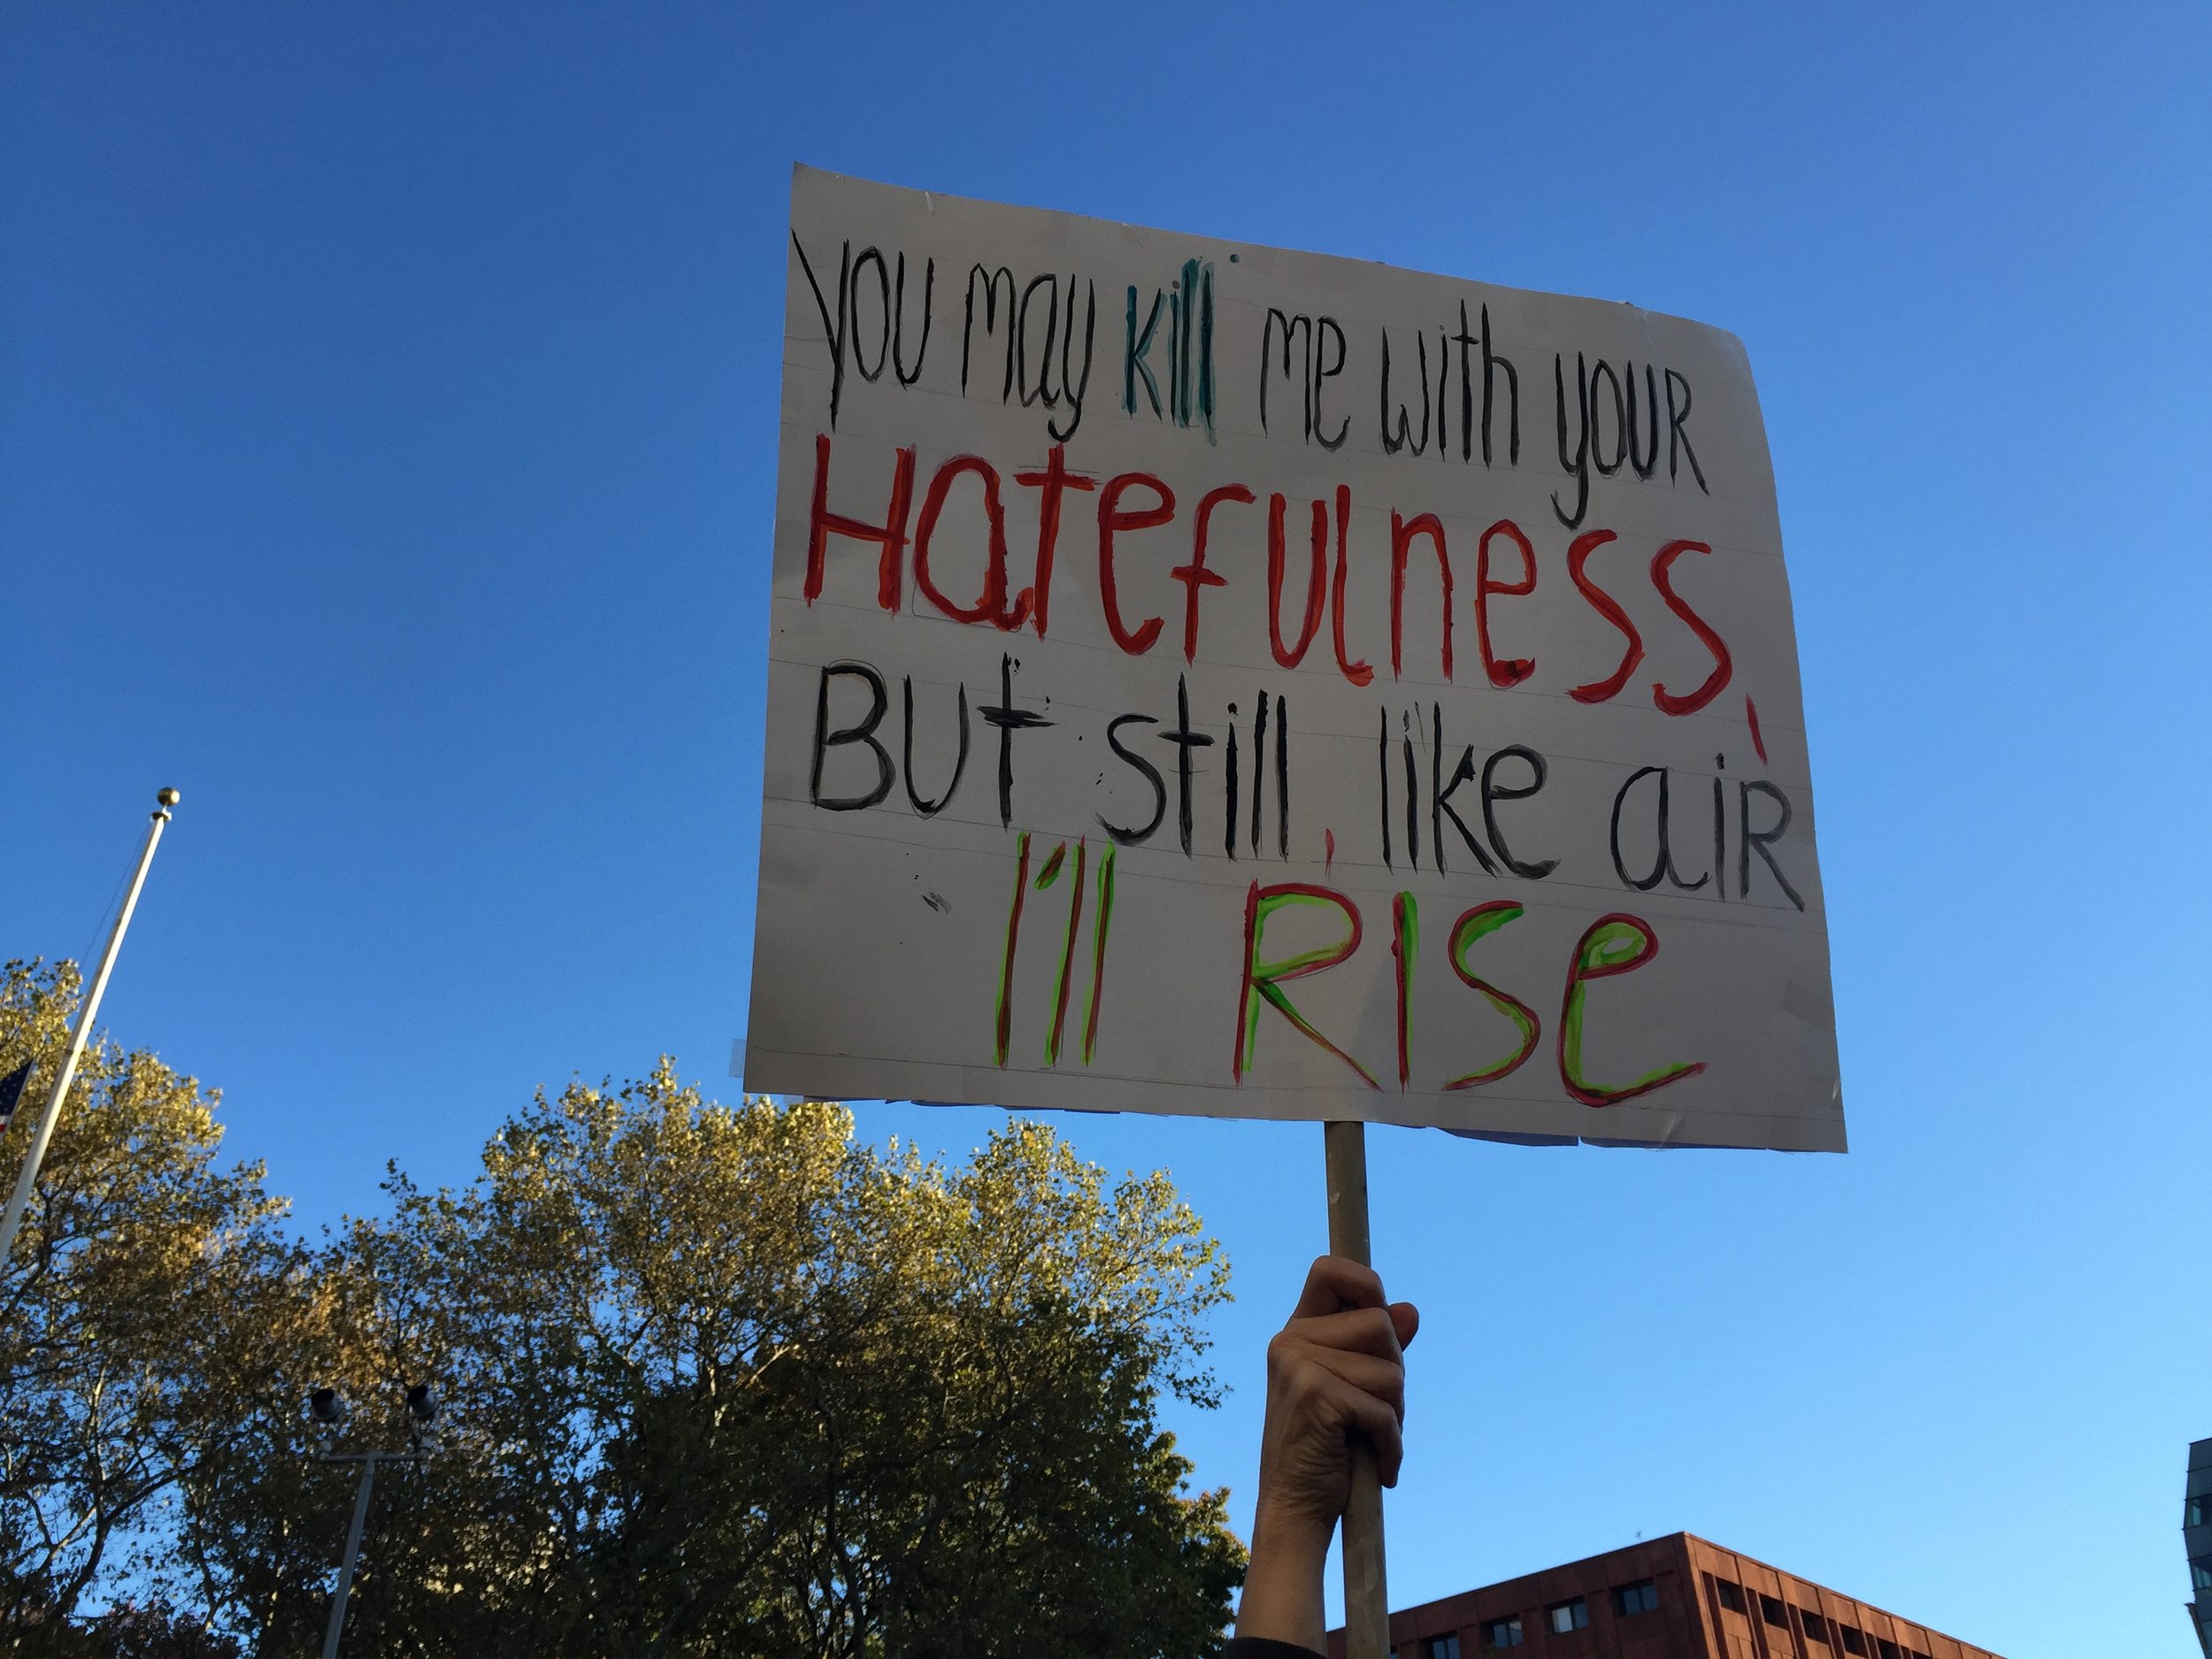 You may kill me with your
Hatefulness,
But still, like air
I'll Rise